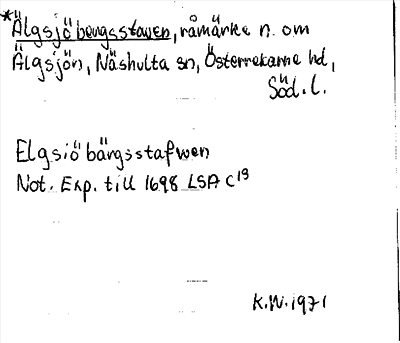 *Älgsjöbergsstaven, råmärke n. om
Älgsjön, Näshulta sn, Österrekarne hd,
Söd. l.
Elgsiöbärgsstafwen
Not. Exp. till 1698 LSA C¹³
K.W. 1971